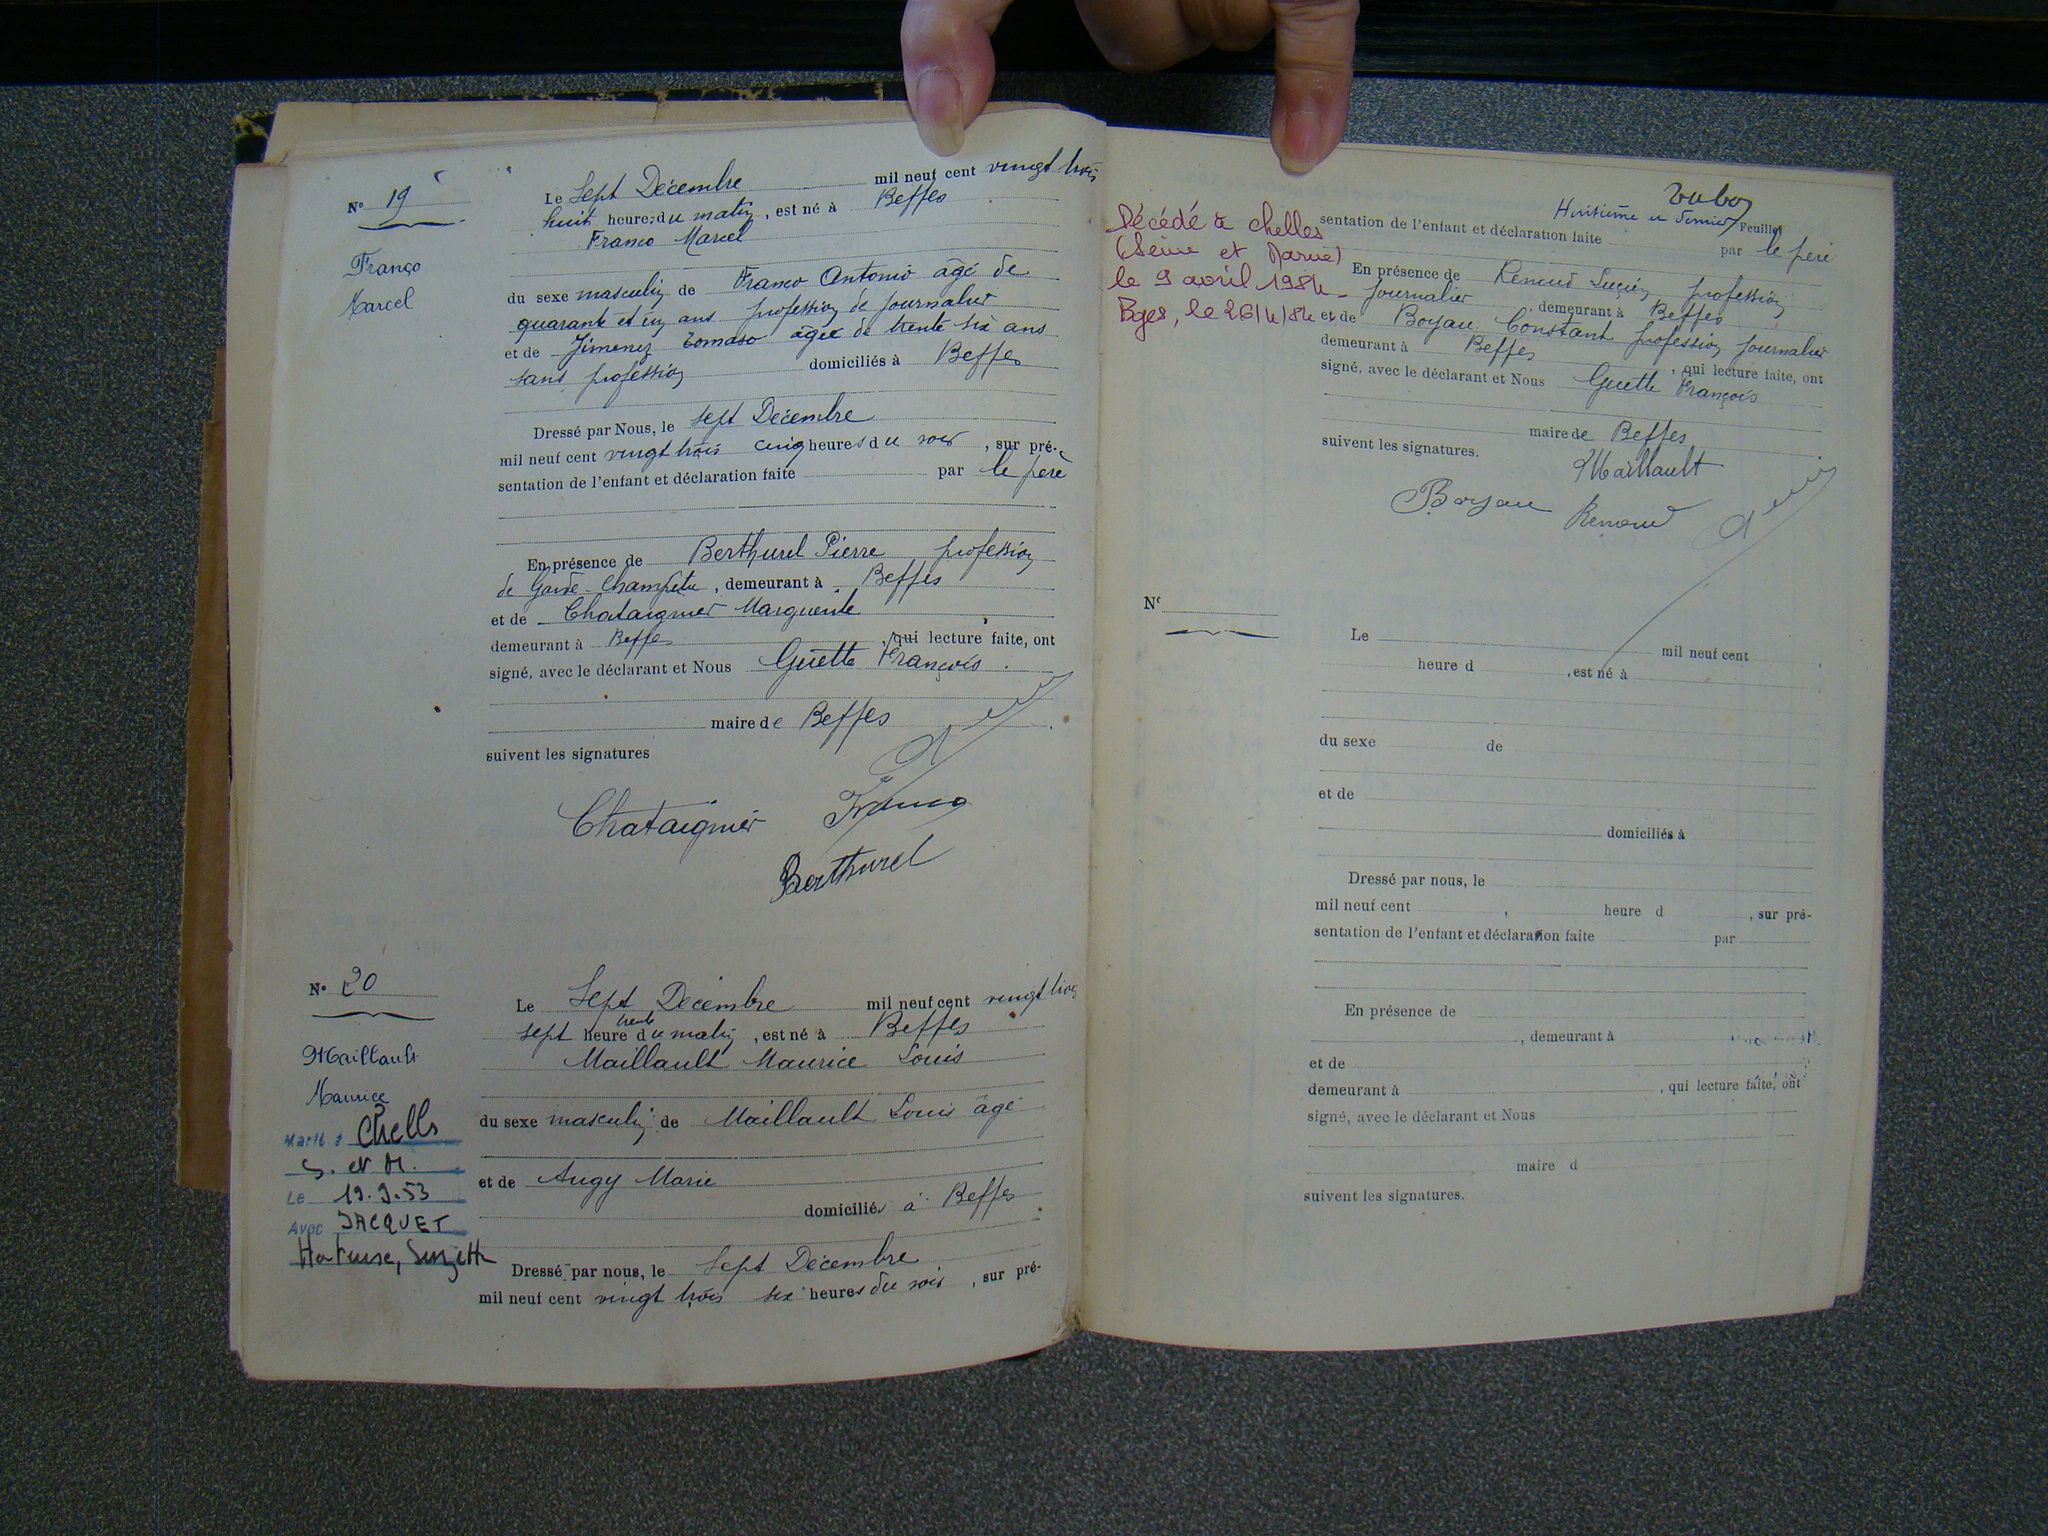 N° 19
Franço
Marcel
Le Sept Décembre mil neuf cent vingt trois
huit heures du matin, est né à Beffes
Franco Marcel
du sexe masculin de Franco Antonio âgé de
quarante et un ans profession de journalier
et de Jimenez Tomaso âgée de trente six ans
sans profession domiciliés à Beffes
Dressé par Nous, le sept Décembre
mil neuf cent vingt trois cinq heures du soir, sur pré-
sentation de l'enfant et déclaration faite par le père
En présence de Berthurel Pierre profession
de Garde-Champêtre, demeurant à Beffes
et de Chataignier Marguerite
demeurant à Beffes, qui lecture faite, ont
signé, avec le déclarant et Nous Guette François
maire de Beffes
suivent les signatures
Chataignier Franco
Berthurel
N° 20
Maillault
Maurice
Marié à Chelles
S. et M.
Le 19.9.53
Avec JACQUET
Hortense, Suzette
Le Sept Décembre mil neuf cent vingt trois
sept heure trente du matin, est né à Beffes
Maillault Maurice Louis
du sexe masculin de Maillault Louis âgé
et de Augy Marie
domiciliés à Beffes
Dressé par nous, le Sept Décembre
mil neuf cent vingt trois six heures du soir, sur pré-
Huitième et dernier Feuillet
Décédé à Chelles
(Seine et Marne)
le 9 avril 1984
Bges, le 26/4/84
sentation de l'enfant et déclaration faite par le père
En présence de Renaud Lucien profession
journalier, demeurant à Beffes
et de Boyau Constant profession journalier
demeurant à Beffes, qui lecture faite, ont
signé, avec le déclarant et Nous Guette François
maire de Beffes
suivent les signatures.
Maillault
Boyau Renaud
N°
Le mil neuf cent
heure d , est né à
du sexe de
et de
domiciliés à
Dressé par nous, le
mil neuf cent , heure d , sur pré-
sentation de l'enfant et déclaration faite par
En présence de
, demeurant à
et de
demeurant à , qui lecture faite, ont
signé, avec le déclarant et Nous
maire d
suivent les signatures.